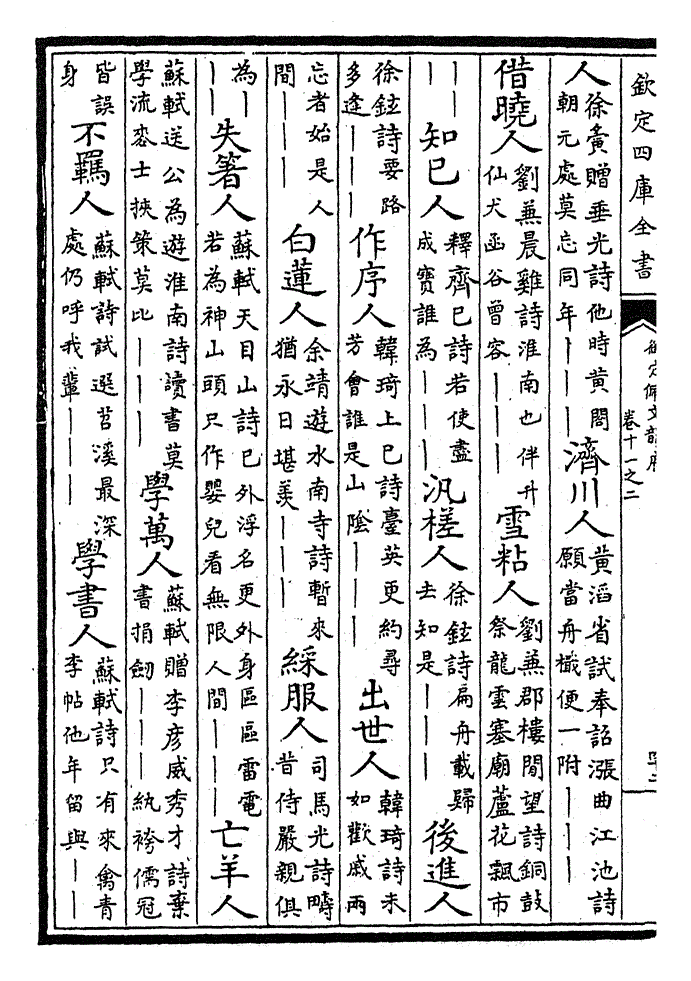 欽定四庫全書
御定佩文韻府
卷十一之二
人徐夤贈垂光詩他時黃閣朝元處莫忘同年｜｜｜濟川人黃滔省試奉詔漲曲江池詩願當舟檝便一附｜｜｜
借曉人劉兼晨雞詩淮南也伴升仙犬函谷曾容｜｜｜雪粘人劉兼郡樓閒望詩銅鼓祭龍雲塞廟蘆花飄市
｜｜｜知已人釋齊已詩若使盡成寶誰為｜｜｜汎槎人徐鉉詩扁舟載歸去知是｜｜｜後進人
徐鉉詩要路多逢｜｜｜作序人韓琦上巳詩臺英更約尋芳會誰是山陰｜｜｜出世人韓琦詩未如歡戚兩
忘者始是人間｜｜｜白蓮人余靖遊水南寺詩暫來猶永日堪羨｜｜｜綵服人司馬光詩疇昔侍嚴親俱
為｜｜｜失箸人蘇軾天目山詩已外浮名更外身區區雷電若為神山頭只作嬰兒看無限人間｜｜｜亡羊人
蘇軾送公為遊淮南詩讀書莫學流麥士挾策莫比｜｜｜學萬人蘇軾贈李彥威秀才詩棄書捐劒｜｜｜紈袴儒冠
皆誤身不羈人蘇軾詩試選苕溪最深處仍呼我輩｜｜｜學書人蘇軾詩只有來禽青李帖他年留與｜｜｜